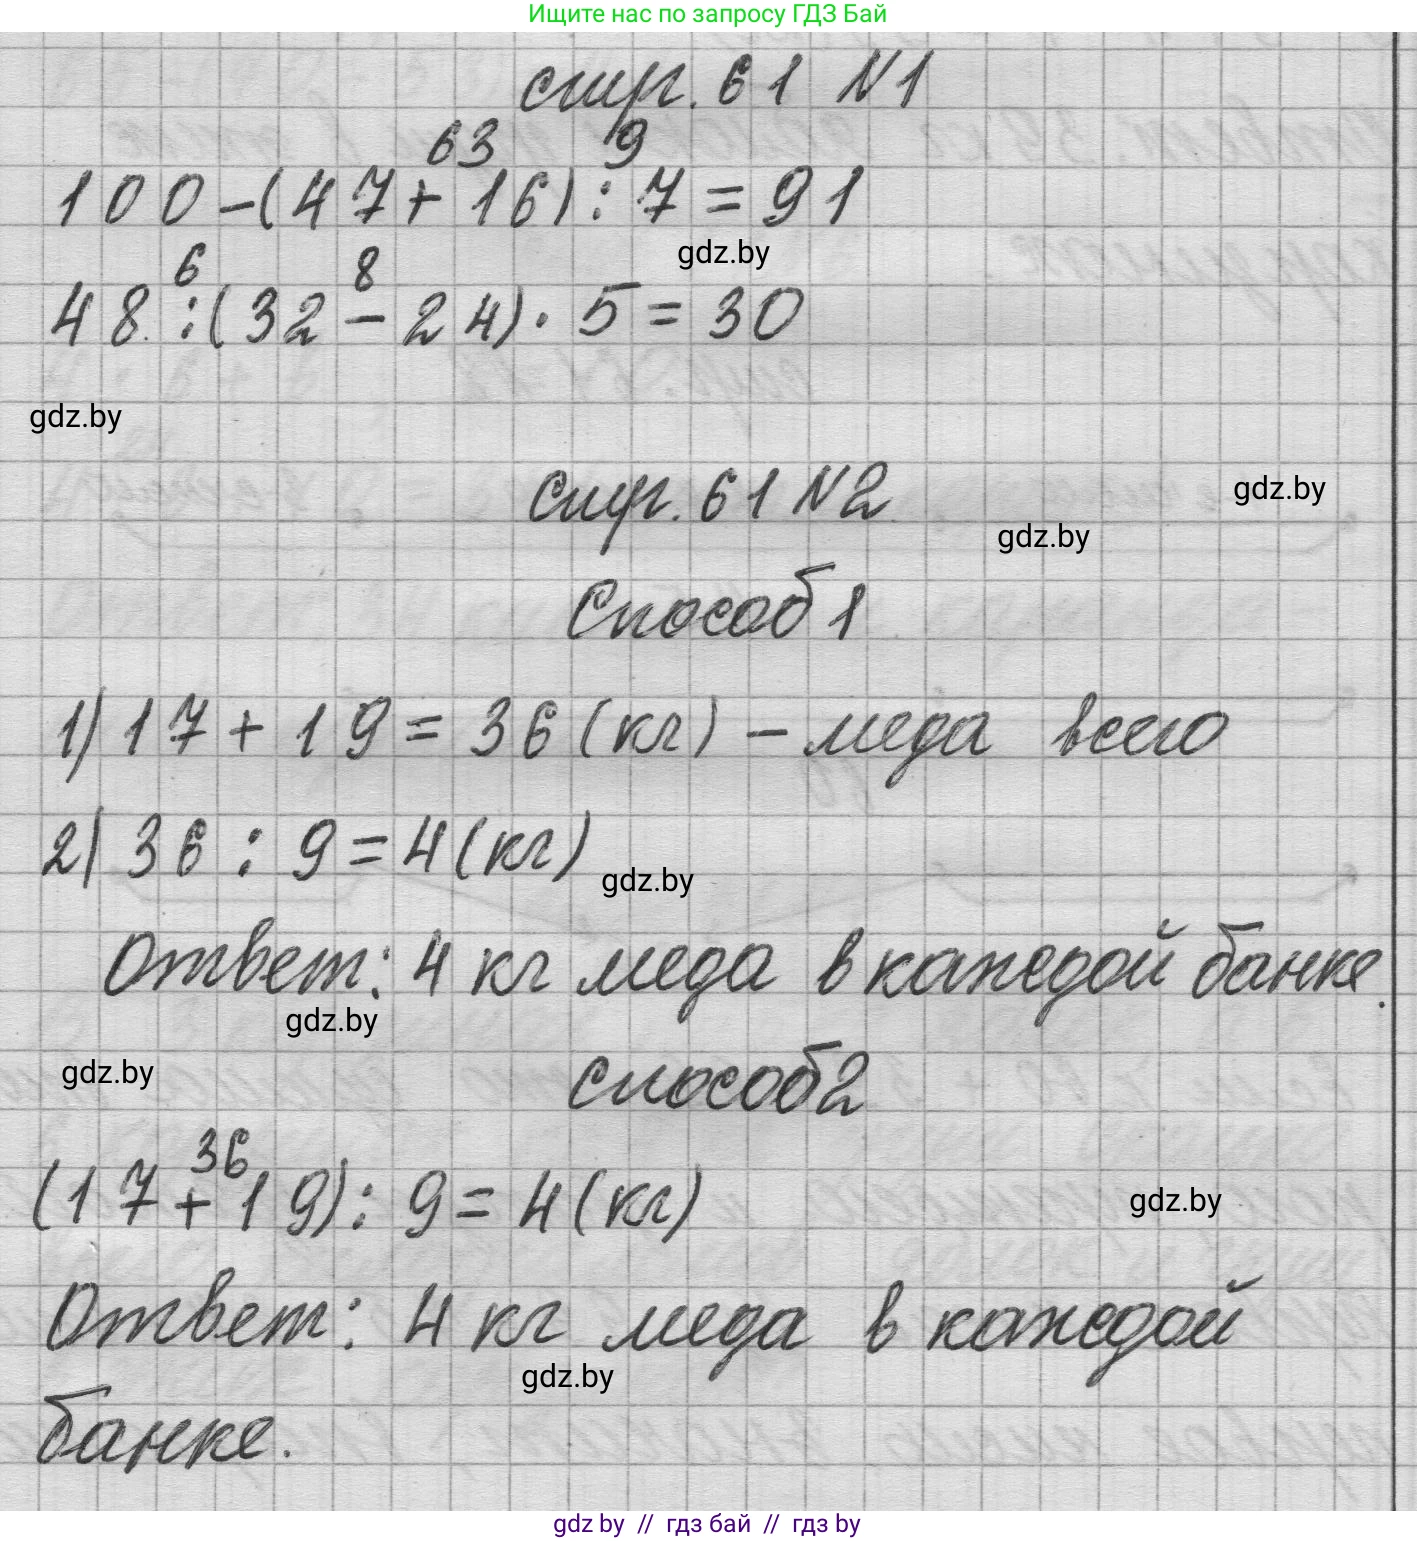 Ищите нас по запросу ГДЗ Бай
стр. 61 N1
63 9
100-(47+16):7=91
gdz.by
6 8
48:(32-24)·5=30
gdz.by
стр. 61 N2
gdz.by
gdz.by
Способ 1
1) 17+19=36(кг) - меда всего
2) 36:9=4(кг)
gdz.by
Ответ: 4 кг меда в каждой банке.
gdz.by
gdz.by
Способ 2
36
(17+19):9=4(кг)
gdz.by
Ответ: 4 кг меда в каждой
gdz.by
банке.
gdz by // гдз бай // гдз by